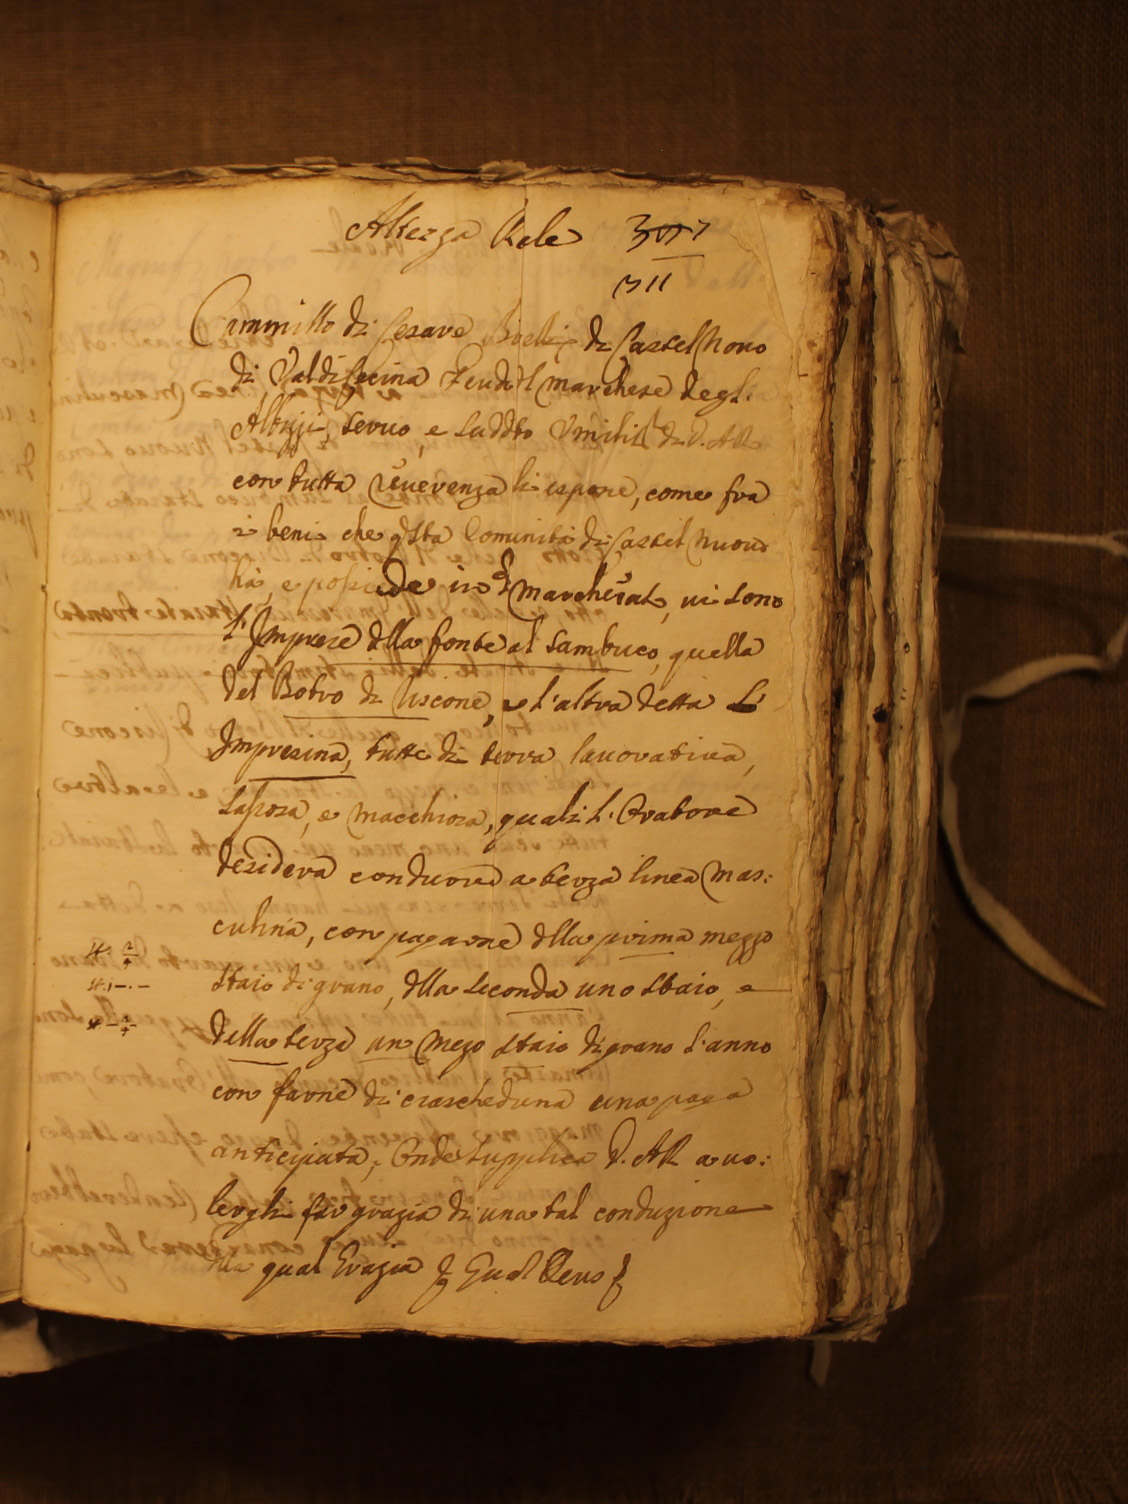 Altezza Reale
311
Cammillo di Cesare di Castel Nouo
di Val di Cecina Feudo del marchese degli
Albizzi, seruo, e suddto Vmiliss di V. AR
con tutta reuerenza li espone, come fra
i beni che qsta Comunità di Castel Nuouo
hà, e possiede in do Marchesato, ui sono
l'Imprese dlla fonte al sambuco, quella
del Botro di Ciscone, e l'altra detta L'
Impresina, tutte di terra lauoratiua,
sassosa, e macchiosa, quali l'Oratore
desidera condurre a terza linea mas:
culina, con pagarne dlla prima mezzo
staio di grano, dlla seconda uno staio, e
della terza un mezo staio di grano l'anno
con farne di ciascheduna una paga
anticipata, Onde supplica V. AR a uo:
lergli far grazia di una tal conduzione
dlla qual Grazia